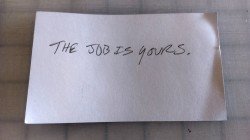 THE JOB IS YOURS.